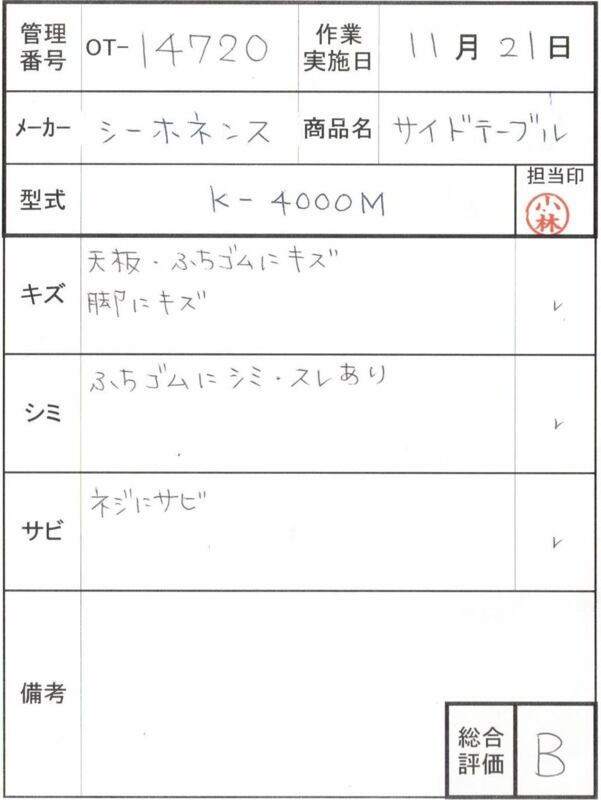 管理番号 OT-14720 作業実施日 11月21日
メーカー シーホネンス 商品名 サイドテーブル
型式 K-4000M 担当印 小林
キズ 天板・ふちゴムにキズ
脚にキズ ✓
シミ ふちゴムにシミ・スレあり ✓
サビ ネジにサビ ✓
備考
総合評価 B